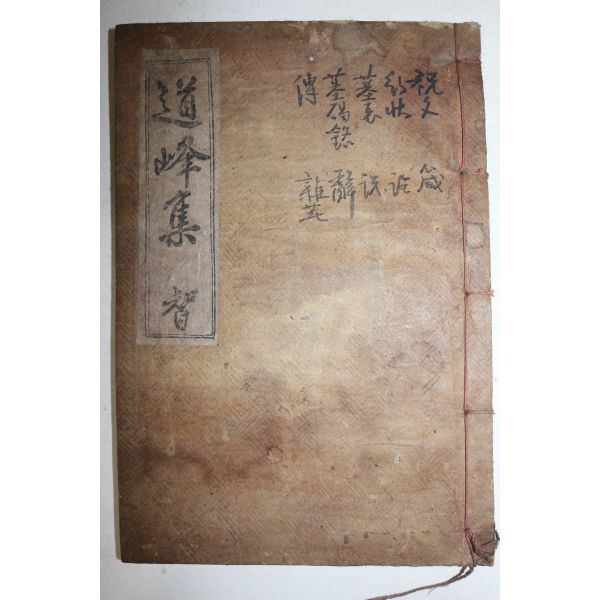 道峰集 智
祝文 箴
行狀 論
墓表 說
墓碣銘 辭
傳 雜著